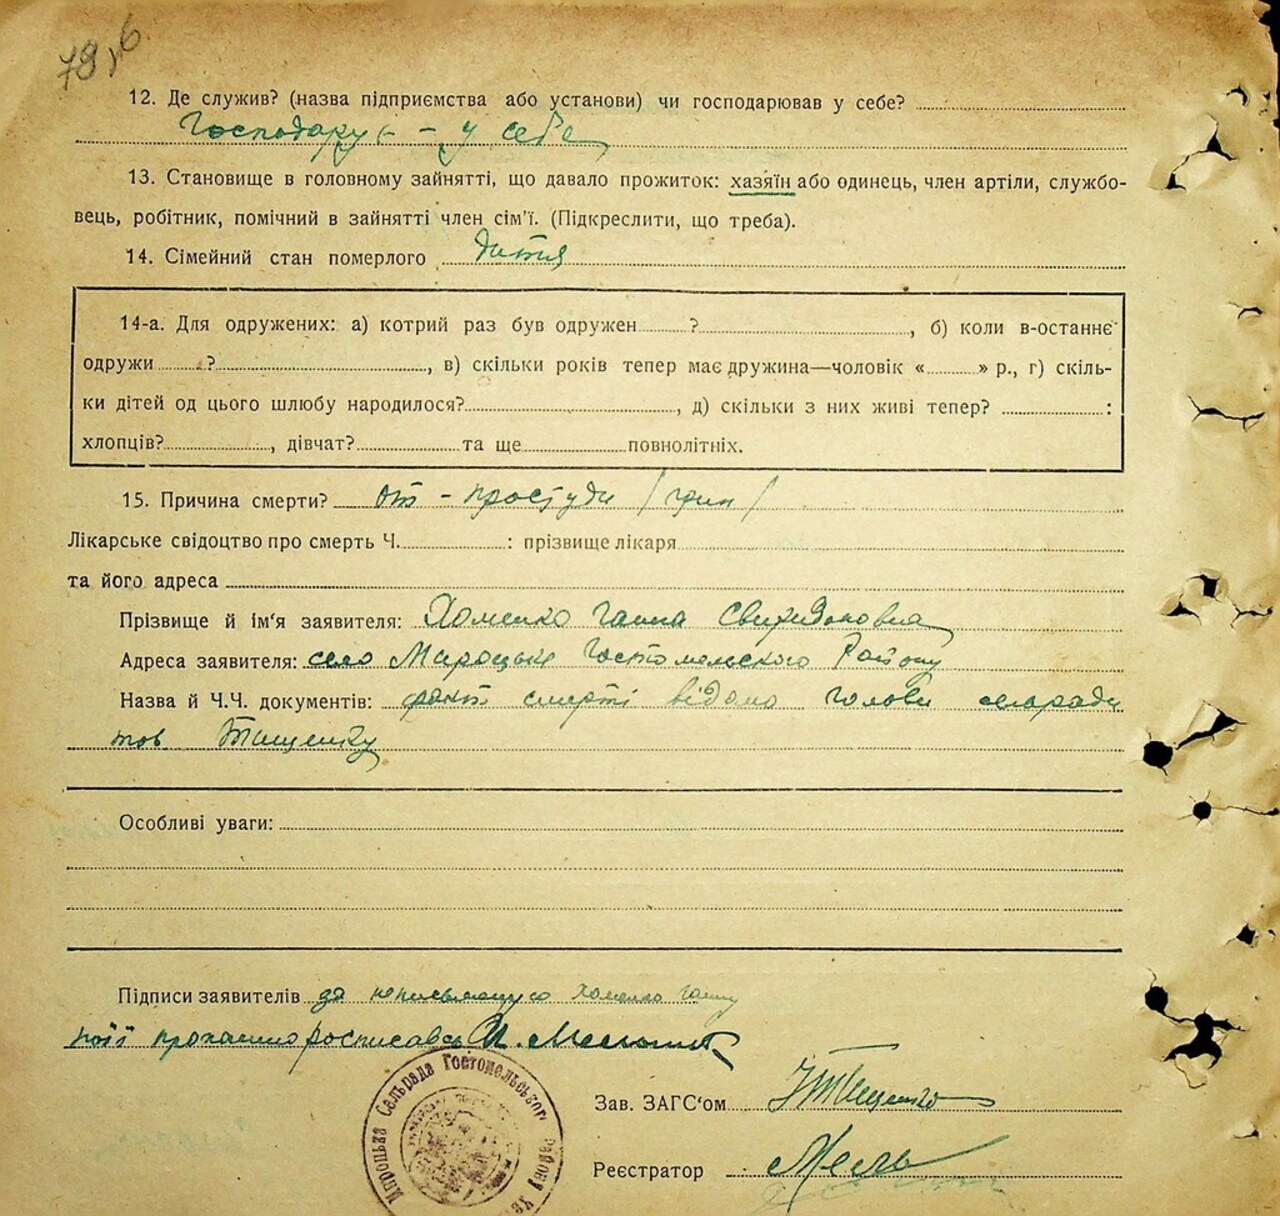 12. Де служив? (назва підприємства або установи) чи господарював у себе?
у себе
13. Становище в головному зайнятті, що давало прожиток: хазяїн або одинець, член артіли, службо-
вець, робітник, помічний в зайнятті член сім'ї. (Підкреслити, що треба).
14. Сімейний стан померлого дитя
14-а. Для одружених: а) котрий раз був одружен ?, б) коли в-останнє
одружи ?, в) скільки років тепер має дружина—чоловік « » р., г) скіль-
ки дітей од цього шлюбу народилося?, д) скільки з них живі тепер? :
хлопців?, дівчат? та ще повнолітніх.
15. Причина смерти? от - простуди /грип/
Лікарське свідоцтво про смерть Ч. : прізвище лікаря
та його адреса
Прізвище й ім'я заявителя: Хоменко Ганна Свиридоновна
Адреса заявителя: село Мироцьке Гостомельского Району
Назва й Ч.Ч. документів: факт смерті відома голови сельради
тов Тищенку
Особливі уваги:
Підписи заявителів за Хоменко Ганну
Мельник
Мироцька Селърада Гостомельського району
Зав. ЗАГС'ом Тищенко
Реєстратор Мель